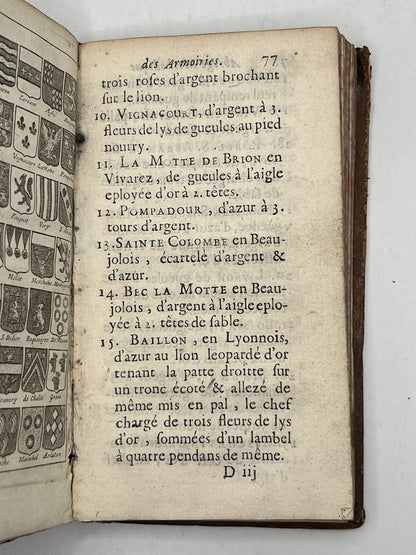 des Armoiries. 77
trois roses d'argent brochant
sur le lion.
10. VIGNACOURT, d'argent à 3.
fleurs de lys de gueules au pied
nourry.
11. LA MOTTE DE BRION en
Vivarez, de gueules à l'aigle
eployée d'or à 2. têtes.
12. POMPADOUR, d'azur à 3.
tours d'argent.
13. SAINTE COLOMBE en Beau-
jolois, écartelé d'argent &
d'azur.
14. BEC LA MOTTE en Beau-
jolois, d'argent à l'aigle eplo-
yée à 2. têtes de sable.
15. BAILLON, en Lyonnois,
d'azur au lion leopardé d'or
tenant la patte droitte sur
un tronc écoté & allezé de
même mis en pal, le chef
chargé de trois fleurs de lys
d'or, sommées d'un lambel
à quatre pendans de même.
D iij